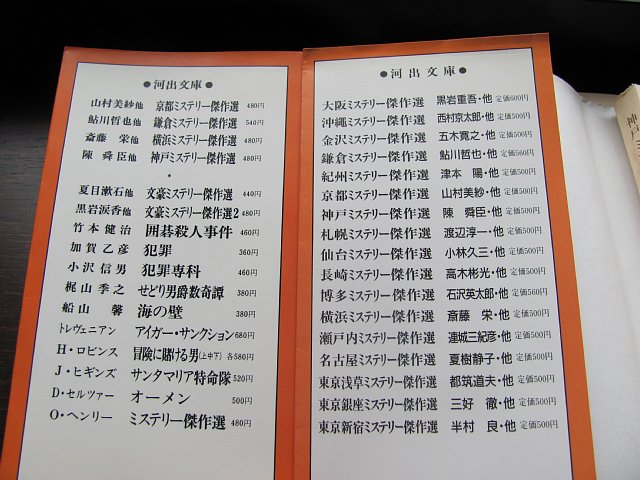 ●河出文庫●
山村美紗他 京都ミステリー傑作選 480円
鮎川哲也他 鎌倉ミステリー傑作選 540円
斎藤 栄他 横浜ミステリー傑作選 480円
陳 舜臣他 神戸ミステリー傑作選 480円
•
夏目漱石他 文豪ミステリー傑作選 440円
黒岩涙香他 文豪ミステリー傑作選2 480円
竹本健治 囲碁殺人事件 460円
加賀乙彦 犯罪 360円
小沢信男 犯罪専科 460円
梶山季之 せどり男爵数奇譚 380円
船山 馨 海の壁 380円
トレヴェニアン アイガー・サンクション 680円
H・ロビンス 冒険に賭ける男(上中下) 各580円
J・ヒギンズ サンタマリア特命隊 520円
D・セルツァー オーメン 500円
O・ヘンリー ミステリー傑作選 480円
●河出文庫●
大阪ミステリー傑作選 黒岩重吾・他 定価600円
沖縄ミステリー傑作選 西村京太郎・他 定価500円
金沢ミステリー傑作選 五木寛之・他 定価500円
鎌倉ミステリー傑作選 鮎川哲也・他 定価560円
紀州ミステリー傑作選 津本 陽・他 定価500円
京都ミステリー傑作選 山村美紗・他 定価500円
神戸ミステリー傑作選 陳 舜臣・他 定価500円
札幌ミステリー傑作選 渡辺淳一・他 定価500円
仙台ミステリー傑作選 小林久三・他 定価500円
長崎ミステリー傑作選 高木彬光・他 定価500円
博多ミステリー傑作選 石沢英太郎・他 定価560円
横浜ミステリー傑作選 斎藤 栄・他 定価500円
瀬戸内ミステリー傑作選 連城三紀彦・他 定価500円
名古屋ミステリー傑作選 夏樹静子・他 定価500円
東京浅草ミステリー傑作選 都筑道夫・他 定価500円
東京銀座ミステリー傑作選 三好 徹・他 定価500円
東京新宿ミステリー傑作選 半村 良・他 定価500円